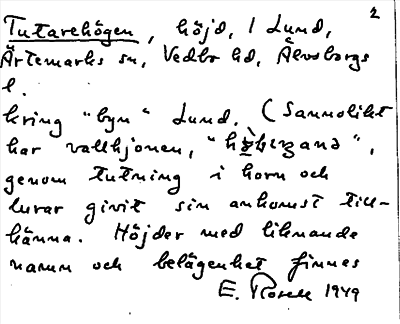 2
Tutarehögen, höjd, l Lund,
Ärtemarks sn, Vedbo hd, Älvsborgs
l.
kring "byn" Lund. (Sannolikt
har vallhjonen,
genom tutning i horn och
lurar givit sin ankomst till-
känna. Höjder med liknande
namn och belägenhet finnes
E. Rosell 1949